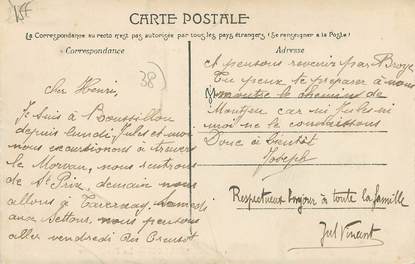 CARTE POSTALE
La Correspondance au recto n'est pas autorisée par tous les pays étrangers (Se renseigner à la Poste)
Correspondance
Adresse
38
Cher Henri,
Je suis à Roussillon
depuis lundi. Jules et moi
nous excursionons à travers
le Morvan, nous rentrons
de St Prix, demain nous
allons à Tavernay, samedi
aux Settons, nous pensons
aller vendredi au Creusot
et pensons revenir par Broye
Tu peux te préparer à nous
montrer le chemin de
Montjeu car ni Jules ni
moi ne le connaissons
Donc à bientôt
Joseph
Respectueux bonjour à toute la famille
Jul Vincent